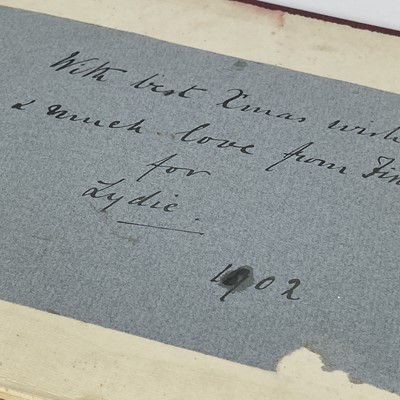 With best Xmas wish
& much love from Fin
for
Lydie.
1902